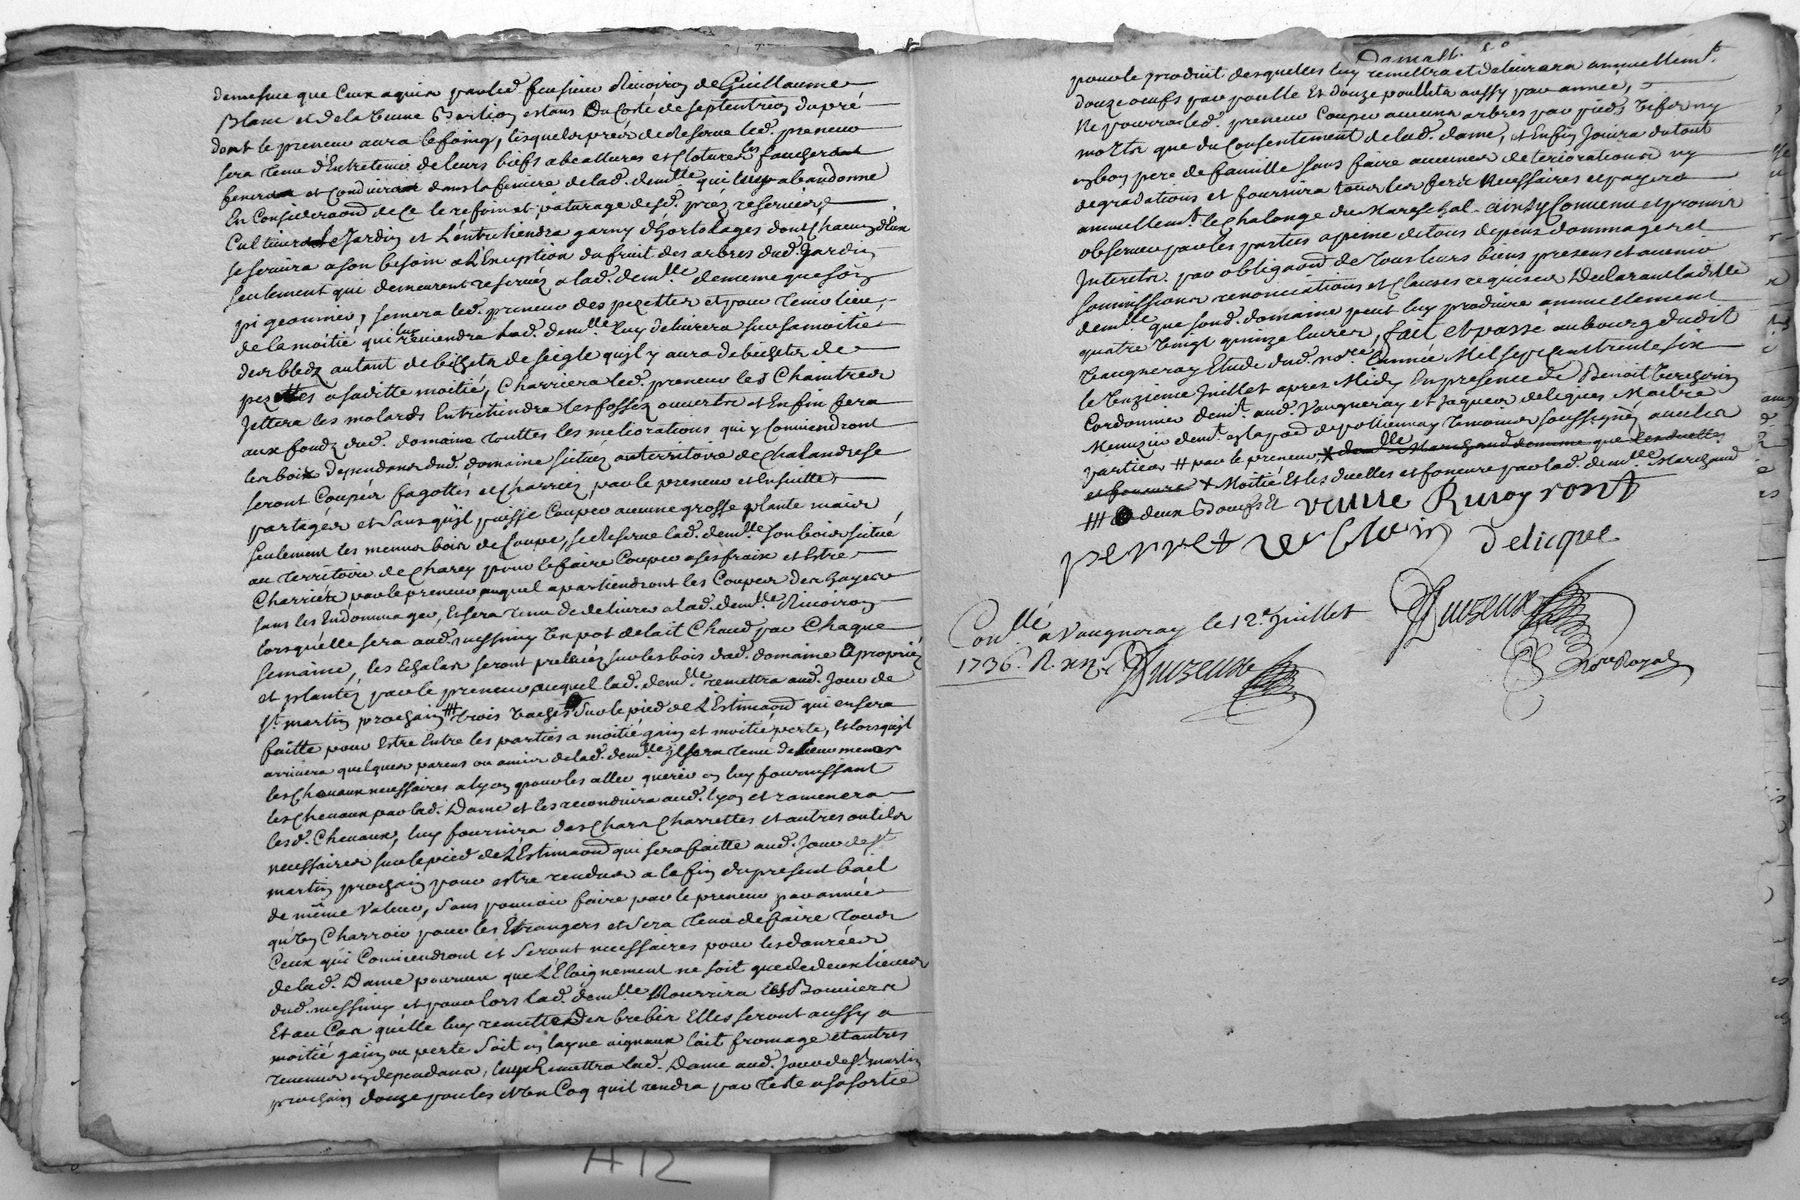 de mesme que Ceux aquis par led. feu sieur Rivoiron de Guillaume
Blanc et de la veuve Berlion estans Du Costé de septentrion du pré
dont le preneur aura le foing, lesquels prés de Reserve led. preneur
sera tenu d'Entretenir de leurs biefs abeallures et Clotures les faucher
fener et Conduire dans la feniere de lad. demlle qui luy abandonne
En Consideraond de Ce le refoin et paturage desd. prés reservés,
Cultiver le Jardin et L'entretiendra garny d'hortolages dont Chacun d'eux
se servira a son besoin a L'Exception du fruit des arbres dud. Jardin
seulement qui demeurent reservés a lad. demlle de meme que son
pigeonnier, semera led. preneur des pezettes et pour tenir lieu
de la moitié qui luy reviendra lad. demlle luy delivrera sur sa moitié
des bledz autant de bichets de seigle quil y aura de bichets de
pezettes a saditte moitié, Charriera led. preneur les Chaintres
Jettera les molards Entretiendra les fossez ouverts et Enfin fera
aux fondz dud. domaine touttes les meliorations qui y Conviendront
les bois dependans dud. domaine situés au territoire de Chalandrese
seront Coupés fagottés et Charriez par le preneur et Ensuitte
partagés et sans quil puisse Couper aucune grosse plante mais
seulement les menus bois de Coupe, se Reserve lad. demlle son bois situé
au territoire de Charey pour le faire Couper a ses fraix et Estre
Charriés par le preneur auquel apartiendront les Coupes des hayes
sans les Endommager, Et sera tenu de delivrer a lad. demlle Rivoiron
lorsqu'elle sera aud. messimy Un pot de lait Chaud par Chaque
semaine, les Echalas seront prelevés sur les bois dud. domaine apropriés
et plantez par le preneur auquel lad. demlle remettra aud. Jour de
St. martin prochain ⧻ trois vaches sur le pied de L'Estimaond qui en sera
faitte pour Estre Entre les parties a moitié gain et moitié perte, Et lorsquil
arrivera quelques parens ou amis de lad. demlle il sera tenu de mener
les Chevaux necessaires a lyon pour les aller querir en luy fournissant
les Chevaux par lad. Dame et les reconduira aud. lyon et ramenera
lesd. Chevaux, luy fournira des Chars Charrettes et autres outils
necessaires sur le pied de L'Estimaond qui sera faitte aud. Jour de St
martin prochain pour estre rendus a la fin du present bail
de même valeur, sans pouvoir faire par le preneur par année
qu'Un Charroir pour les Etrangers et sera tenu de faire tous
Ceux qui Conviendront et seront necessaires pour les danrées
de lad. Dame pourveu que L'Eloignement ne soit que de deux lieues
dud. messimy et pour lors lad. demlle Nourrira les Bouviers
Et au Cas qu'elle luy remette Des brebis Elles seront aussy a
moitié gain ou perte soit en layne aigneaux lait fromage et autres
revenus en dependans, luy Remettra lad. Dame aud. Jour de St. martin
prochain douze poules et Un Coq quil rendra par teste a sa sortie
pour le produit desquelles luy remettra et delivrera annuellemt.
douze oeufs par poulle Et douze poullets aussy par année,
Ne pourra led. preneur Couper aucuns arbres par pied Verts ny
morts que du Consentement de lad. dame, et Enfin Jouira du tout
en bon pere de famille sans faire aucunes deteriorations ny
degradations et fournira tous les fers Necessaires et payera
annuellemt le Chalonge du Mareschal - ainsy Convenu et promis
observer par les parties a peine de tous depens dommages et
Interets. par obligaond de tous leurs biens presens et avenir
soumissions renonciations et Clauses requises Declarant laditte
demlle que sond. domaine peut luy produire annuellement
quatre vingt quinze livres, fait et passé au bourg dudit
Vaugneray Etude dud. nore. L'année Mil sept Cent trente six
le Unzieme Juillet apres Midy En presence de Benoit
Cordonnier demt. aud. Vaugneray et Jaques delicques Maitre
Menuzier demt. en la par. de pollionnay temoins soussignés avec les
parties ⧺ par le preneur
+ Moitié Et les duelles et fonsure par lad. demlle Marchand
⧻ deux Boeufs et veuve Rivoyront
perret Delicque
Duvzeux
No.re Royal
Conllé a Vaugneray le 12e. Juillet
1736. R.
Duvzeux
A12